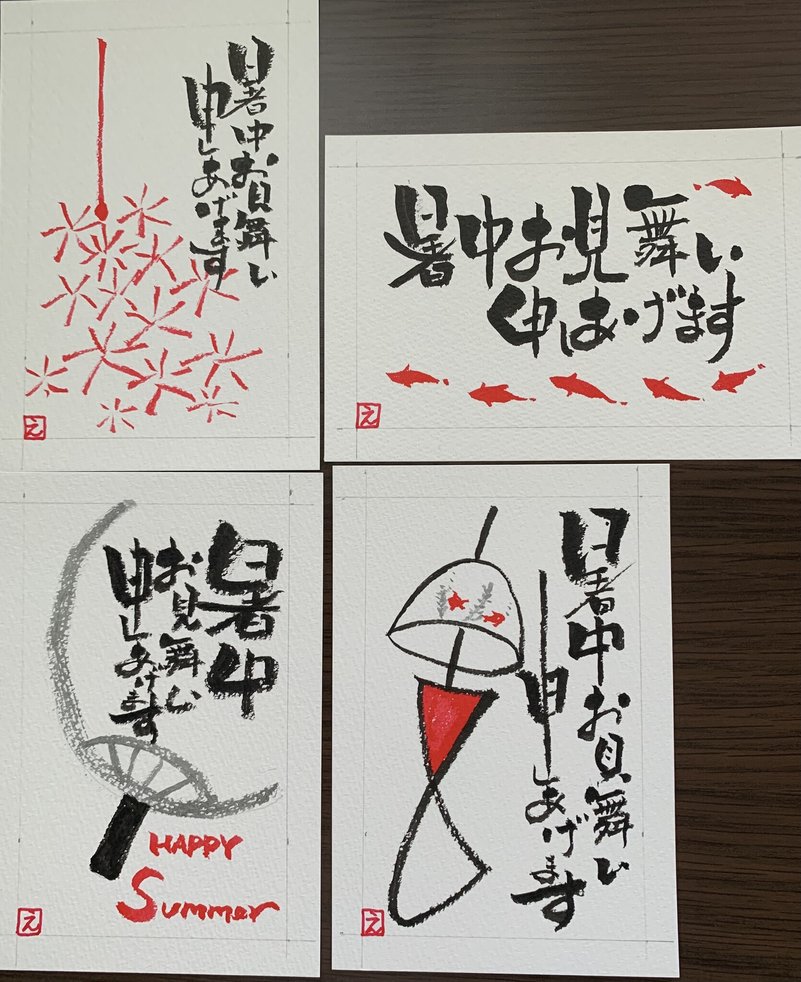 暑中お見舞い
申しあげます
え
暑中お見舞い
申しあげます
え
暑中
お見舞い
申しあげます
HAPPY
Summer
え
暑中お見舞い
申しあげます
え